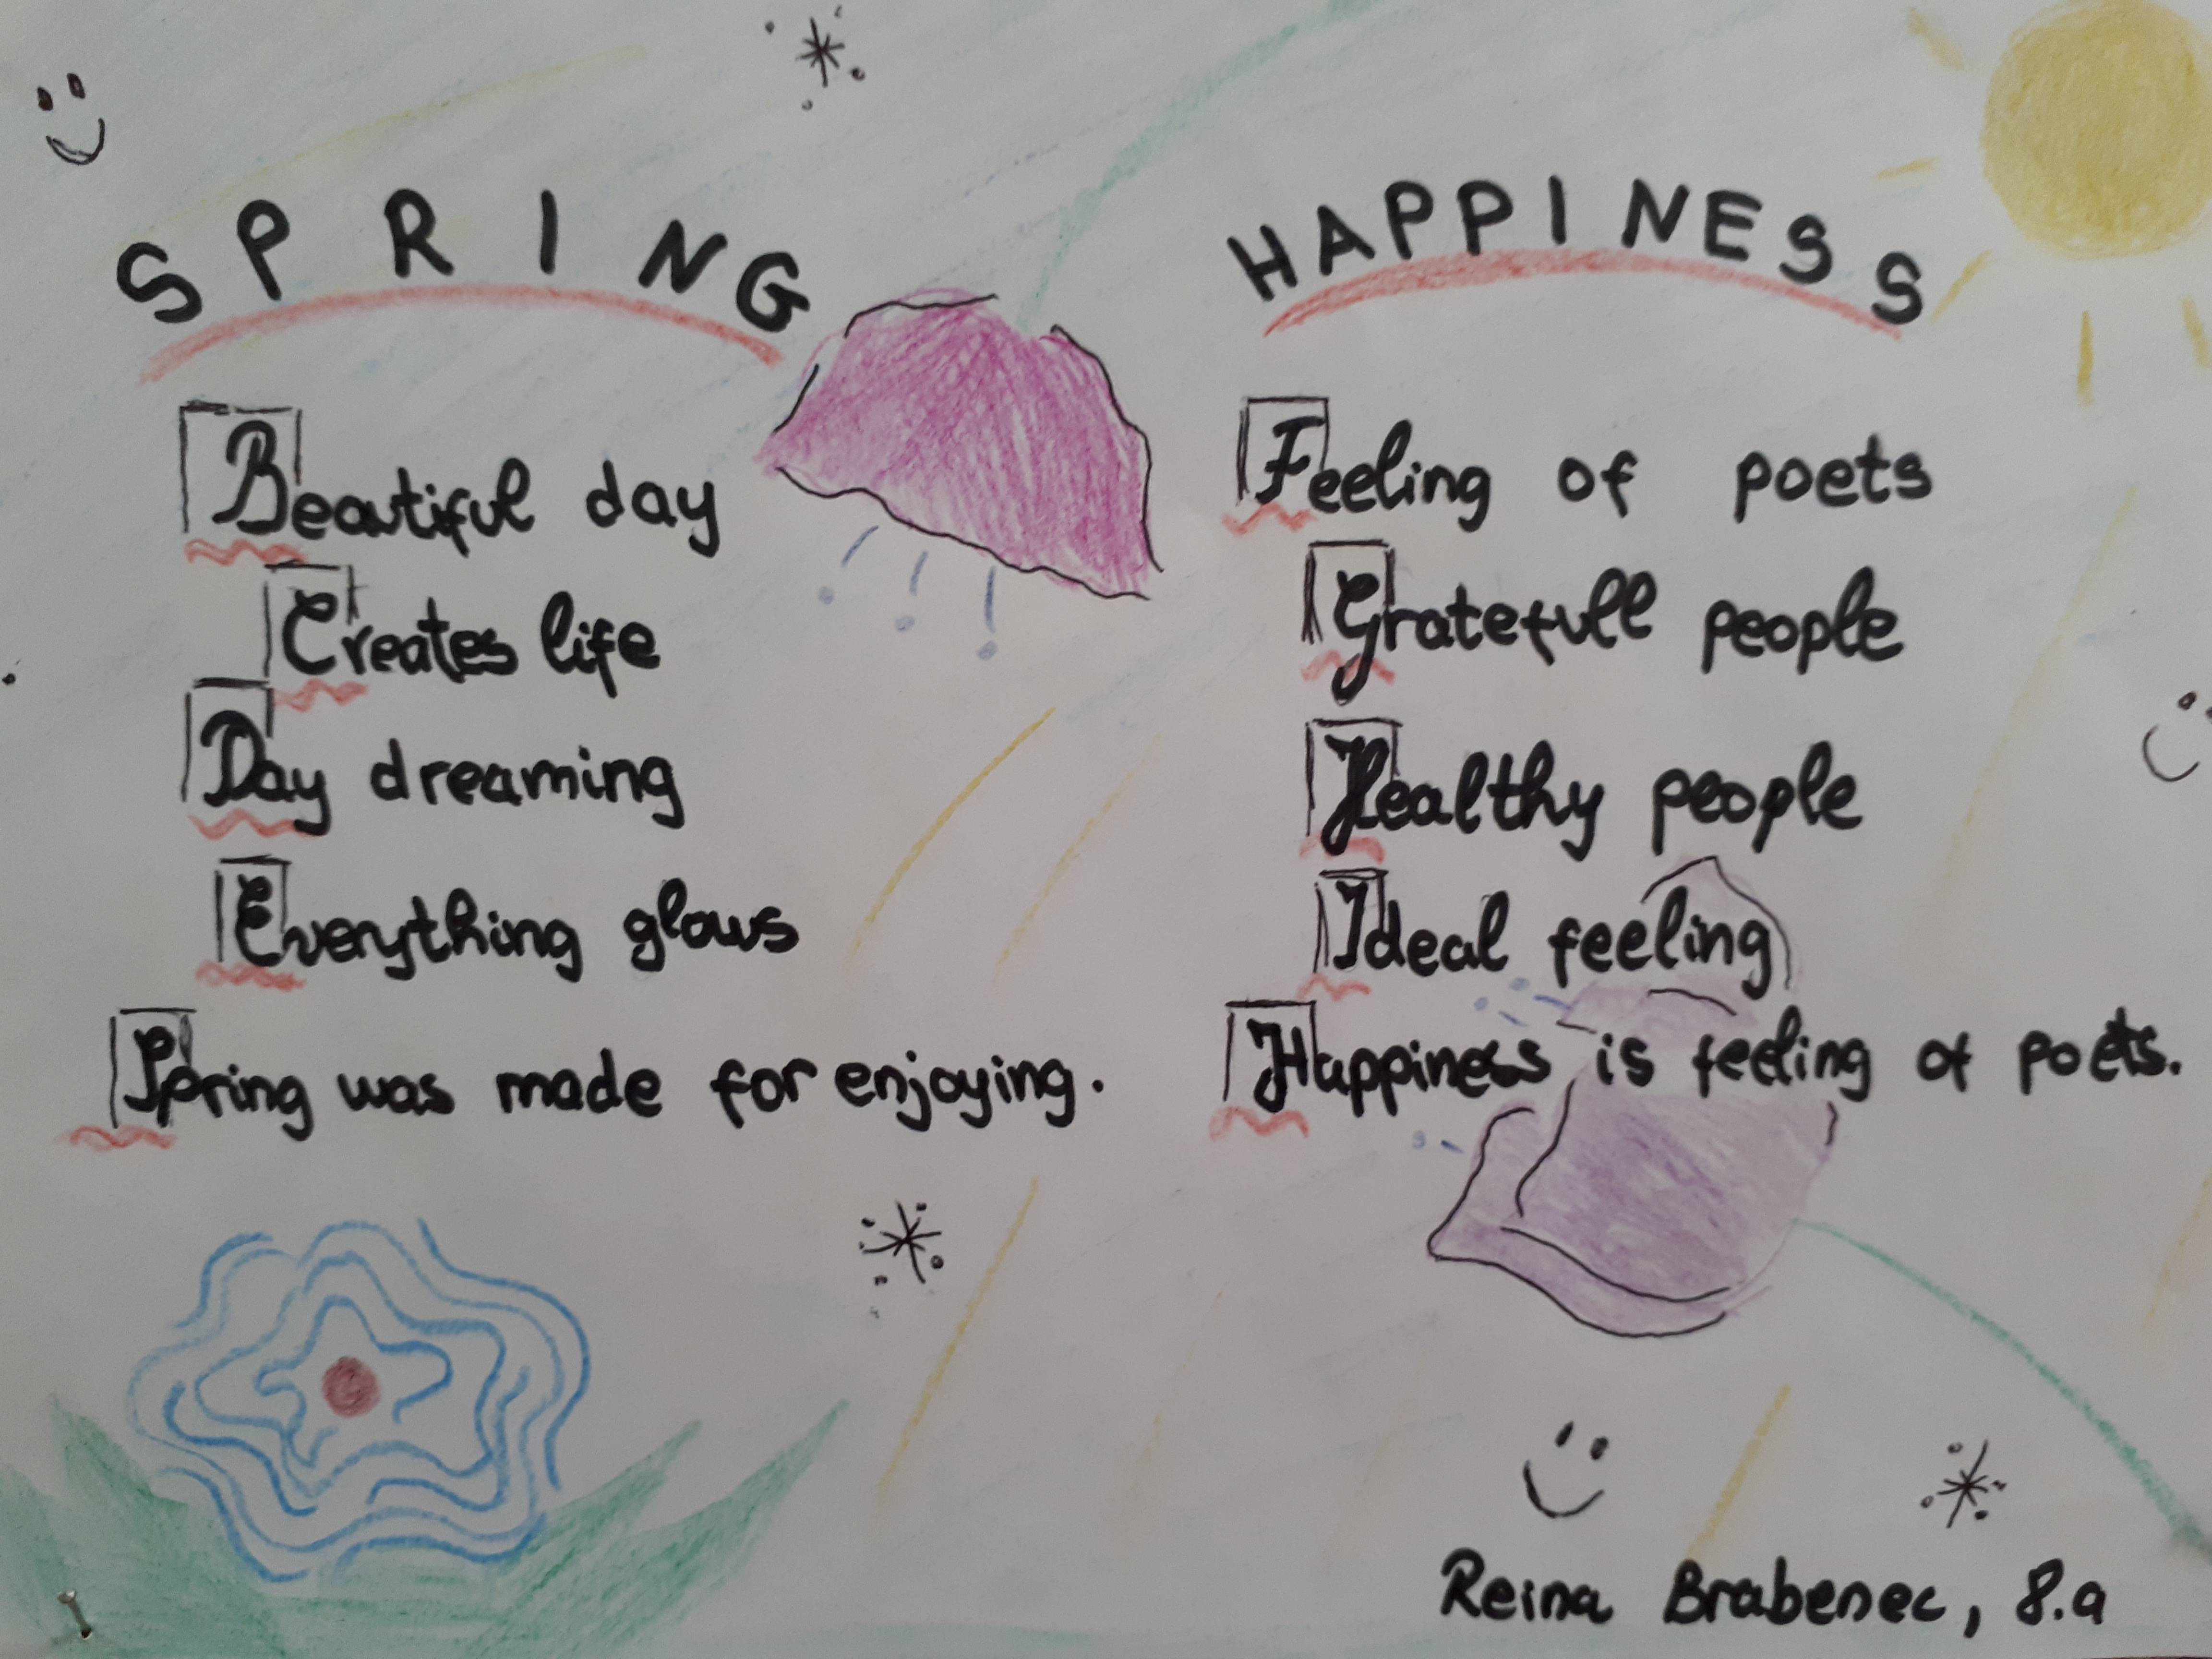 SPRING
Beautiful day
Creates life
Day dreaming
Everything glows
Spring was made for enjoying.
HAPPINESS
Feeling of poets
Gratefull people
Healthy people
Ideal feeling
Happiness is feeling of poets.
Reina Brabenec, 8.a